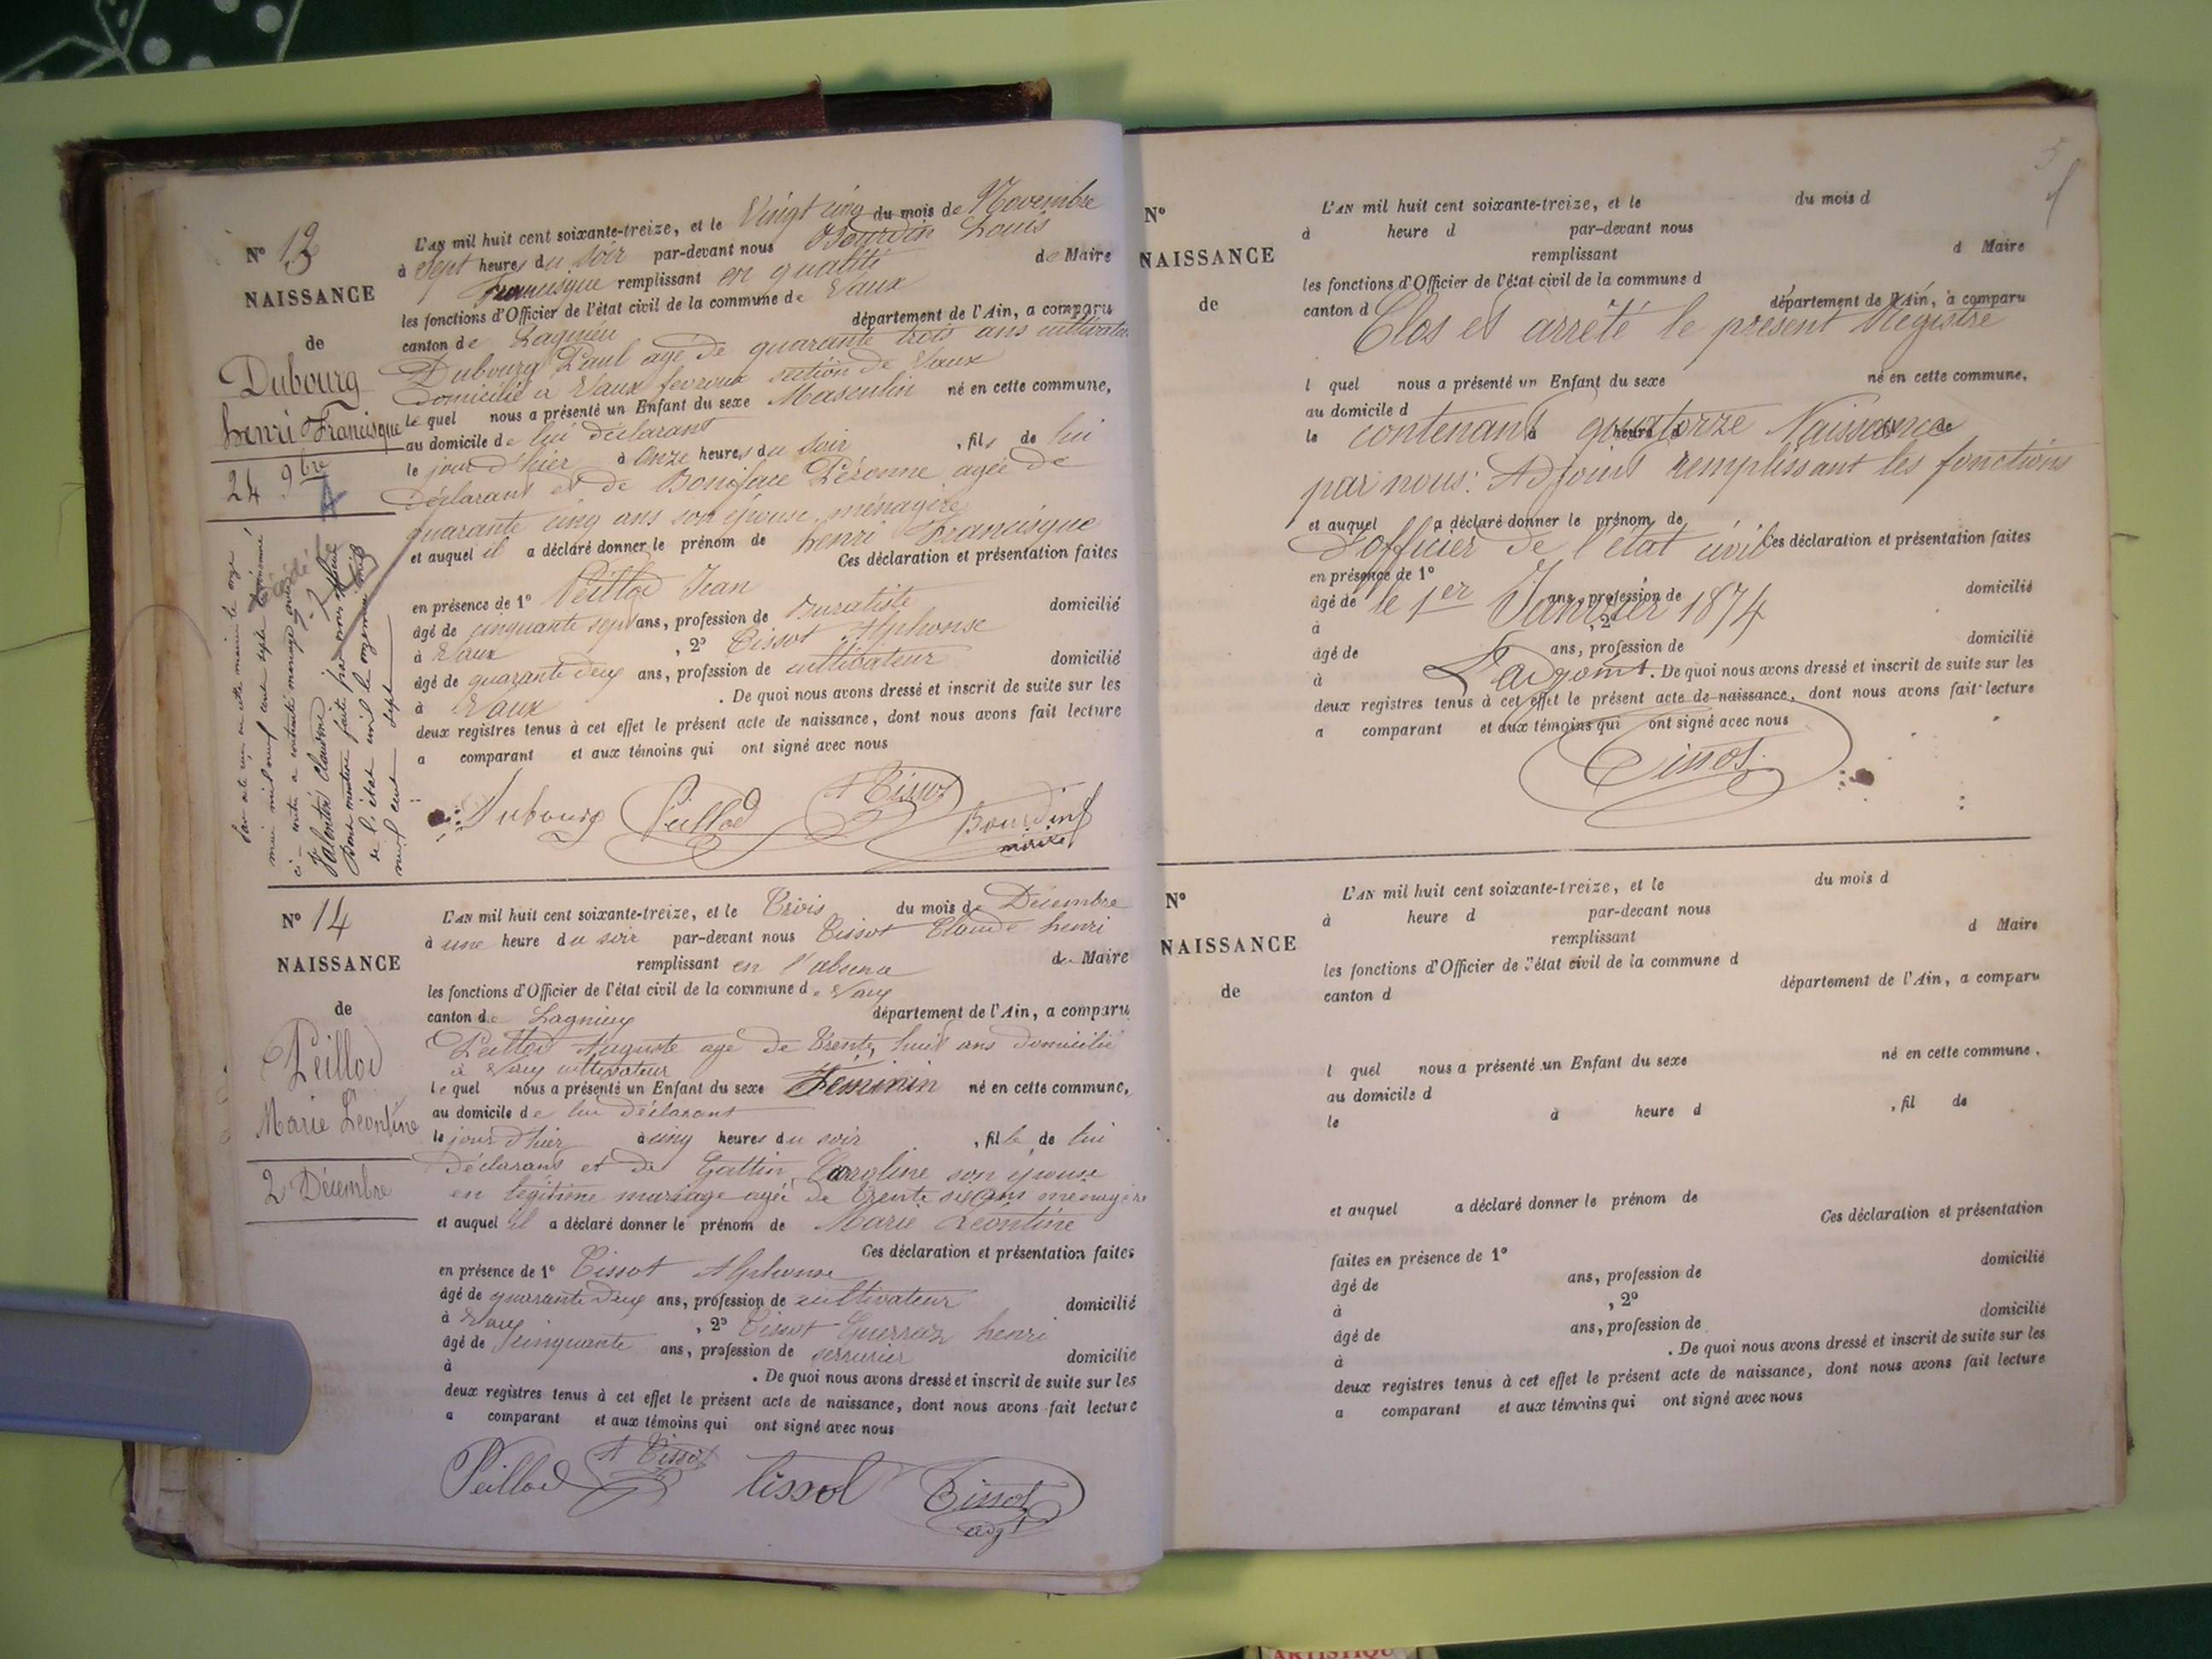 N° 13
NAISSANCE
de
Dubourg
henri Francisque
24 9bre
L'AN mil huit cent soixante-treize, et le Vingt cinq du mois de Novembre
à Sept heures du soir par-devant nous Bourdin Louis
Francisque remplissant en qualité de Maire
les fonctions d'Officier de l'état civil de la commune de Vaux
canton de Lagnieu département de l'Ain, a comparu
Dubourg Paul agé de quarante trois ans cultivateur
Domicilié a Vaux fevroux section de Vaux
le quel nous a présenté un Enfant du sexe Masculin né en cette commune,
au domicile de lui déclarant
le jour d'hier à Onze heures du soir , fils de lui
Déclarant et de Boniface Péronne agée de
quarante cinq ans son épouse ménagère
et auquel il a déclaré donner le prénom de henri Francisque
Ces déclaration et présentation faites
en présence de 1° Peillod Jean
âgé de cinquante sept ans, profession de Buratiste domicilié
à Vaux , 2° Tissot Alphonse
âgé de quarante deux ans, profession de cultivateur domicilié
à Vaux . De quoi nous avons dressé et inscrit de suite sur les
deux registres tenus à cet effet le présent acte de naissance, dont nous avons fait lecture
a comparant et aux témoins qui ont signé avec nous
Dubourg Peillod A Tissot Bourdin
maire
Par acte reçu en cette mairie le onze
mai mil neuf cent sept le dénommé
ci-contre a contracté mariage avec
Valentin Claudine
Dont mention faite par nous officier
de l'état civil le onze mai
mil neuf cent sept
N° 14
NAISSANCE
de
Peillod
Marie Léontine
2 Décembre
L'AN mil huit cent soixante-treize, et le Trois du mois de Décembre
à une heure du soir par-devant nous Tissot Claude henri
remplissant en l'absence du Maire
les fonctions d'Officier de l'état civil de la commune de Vaux
canton de Lagnieu département de l'Ain, a comparu
Peillod Auguste agé de Trente huit ans domicilié
à Vaux cultivateur
le quel nous a présenté un Enfant du sexe Féminin né en cette commune,
au domicile de lui déclarant
le jour d'hier à cinq heures du soir , fille de lui
déclarant et de Gattin Caroline son épouse
en légitime mariage agée de trente six ans ménagère
et auquel il a déclaré donner le prénom de Marie Léontine
Ces déclaration et présentation faites
en présence de 1° Tissot Alphonse
âgé de quarante deux ans, profession de cultivateur domicilié
à Vaux , 2° Tissot Guerraz henri
âgé de cinquante ans, profession de serrurier domicilié
à . De quoi nous avons dressé et inscrit de suite sur les
deux registres tenus à cet effet le présent acte de naissance, dont nous avons fait lecture
a comparant et aux témoins qui ont signé avec nous
Peillod A Tissot tissot Tissot
adjt
5
N°
NAISSANCE
de
L'AN mil huit cent soixante-treize, et le du mois d
à heure d par-devant nous
remplissant d Maire
les fonctions d'Officier de l'état civil de la commune d
canton d département de l'Ain, a comparu
Clos et arrêté le présent Registre
l quel nous a présenté un Enfant du sexe né en cette commune,
au domicile d
le à heure d , fil de
contenant quatorze Naissance
par nous: Adjoint remplissant les fonctions
et auquel a déclaré donner le prénom de
d'officier de l'état civil
Ces déclaration et présentation faites
en présence de 1°
âgé de ans, profession de domicilié
le 1er Janvier 1874
à , 2°
âgé de ans, profession de domicilié
L'adjoint
à . De quoi nous avons dressé et inscrit de suite sur les
deux registres tenus à cet effet le présent acte de naissance, dont nous avons fait lecture
a comparant et aux témoins qui ont signé avec nous
Tissot
N°
NAISSANCE
de
L'AN mil huit cent soixante-treize, et le du mois d
à heure d par-devant nous
remplissant d Maire
les fonctions d'Officier de l'état civil de la commune d
canton d département de l'Ain, a comparu
l quel nous a présenté un Enfant du sexe né en cette commune,
au domicile d
le à heure d , fil de
et auquel a déclaré donner le prénom de
Ces déclaration et présentation
faites en présence de 1°
âgé de ans, profession de domicilié
à , 2°
âgé de ans, profession de domicilié
à . De quoi nous avons dressé et inscrit de suite sur les
deux registres tenus à cet effet le présent acte de naissance, dont nous avons fait lecture
a comparant et aux témoins qui ont signé avec nous
ARTISTIQU